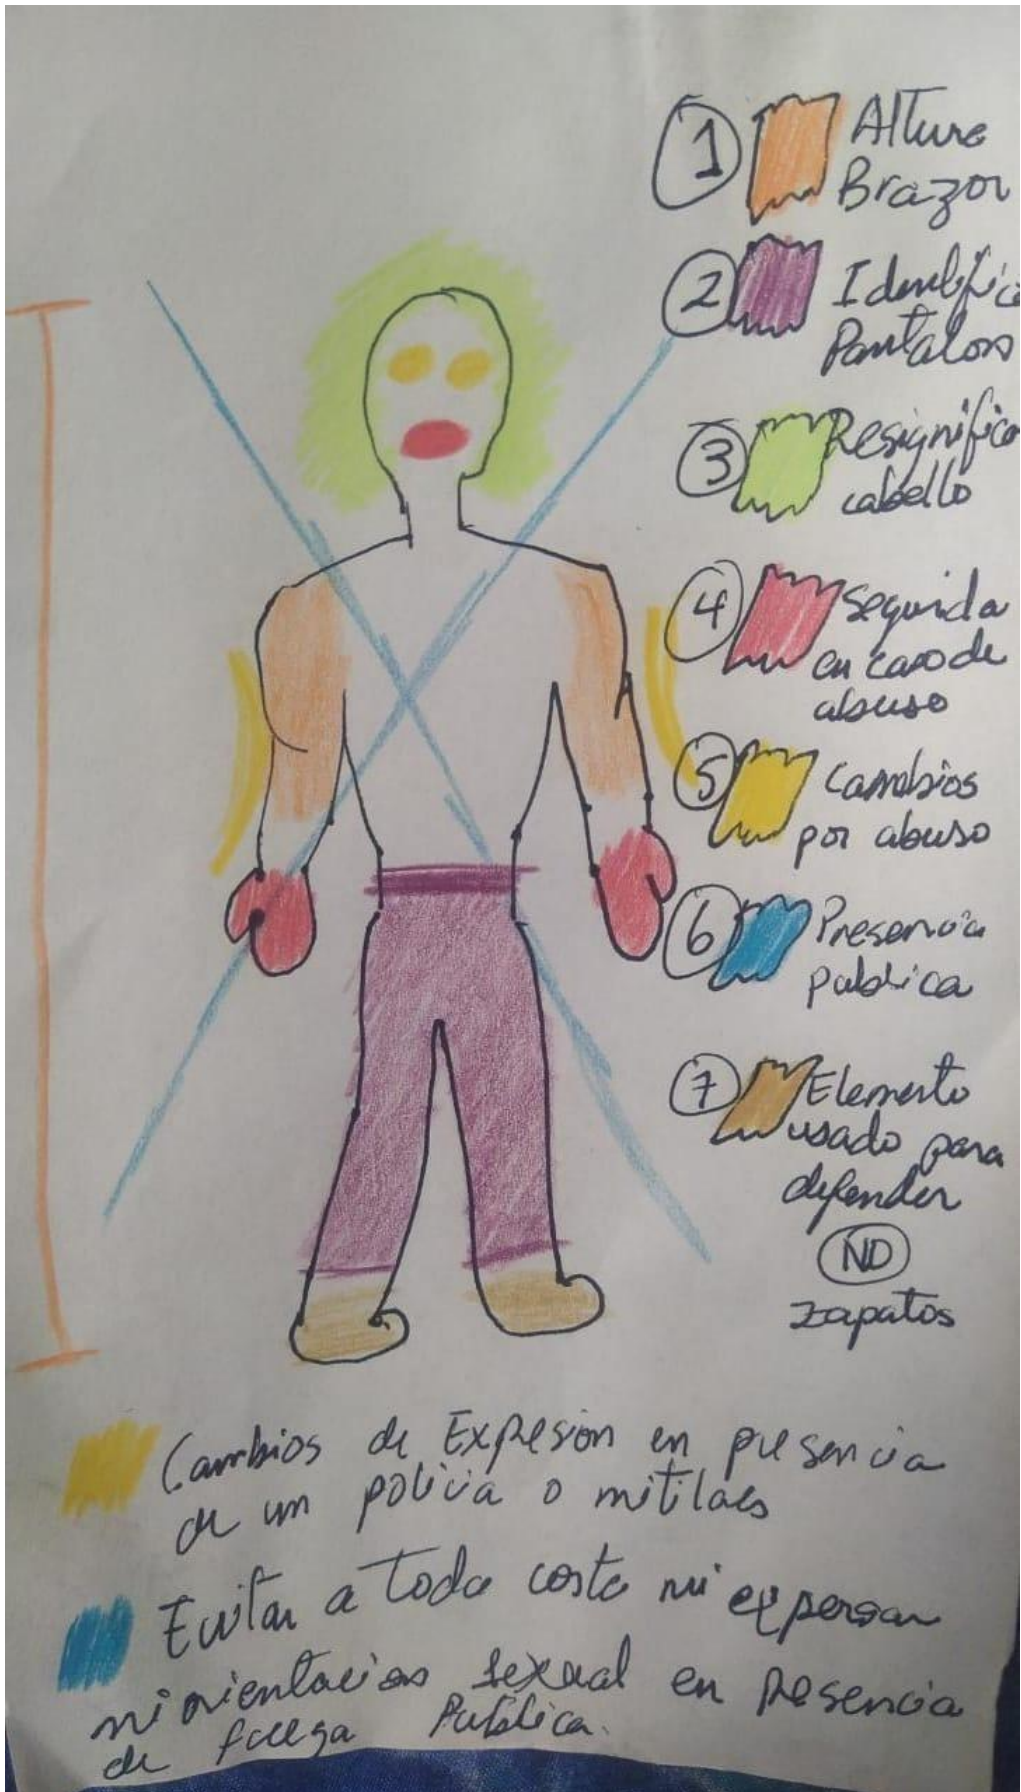 1 Altura
Brazos
2 Identifica
Pantalon
3 Resignifica
cabello
4 Segunda
en caso de
abuso
5 Cambios
por abuso
6 Presencia
publica
7 Elemento
usado para
defender
NO
zapatos
Cambios de Expresion en presencia
de un policia o
Evitar a toda costa
mi orientacion sexual en presencia
de fuerza Publica.